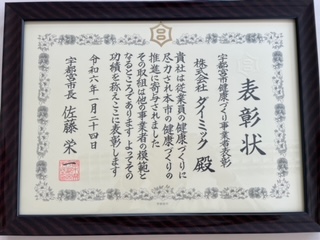 表彰状
宇都宮市健康づくり事業者表彰
株式会社 ダイミック 殿
貴社は従業員の健康づくりに
尽力され本市の健康づくりの
推進に寄与されました
その取組は他の事業者の模範と
なるところでありますよってその
功績を称えここに表彰します
令和六年一月二十四日
宇都宮市長 佐藤栄一